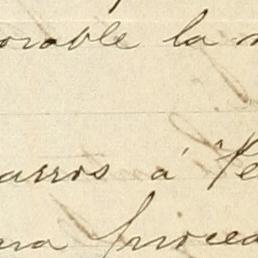 orable la
arros á "Pe
ra proced